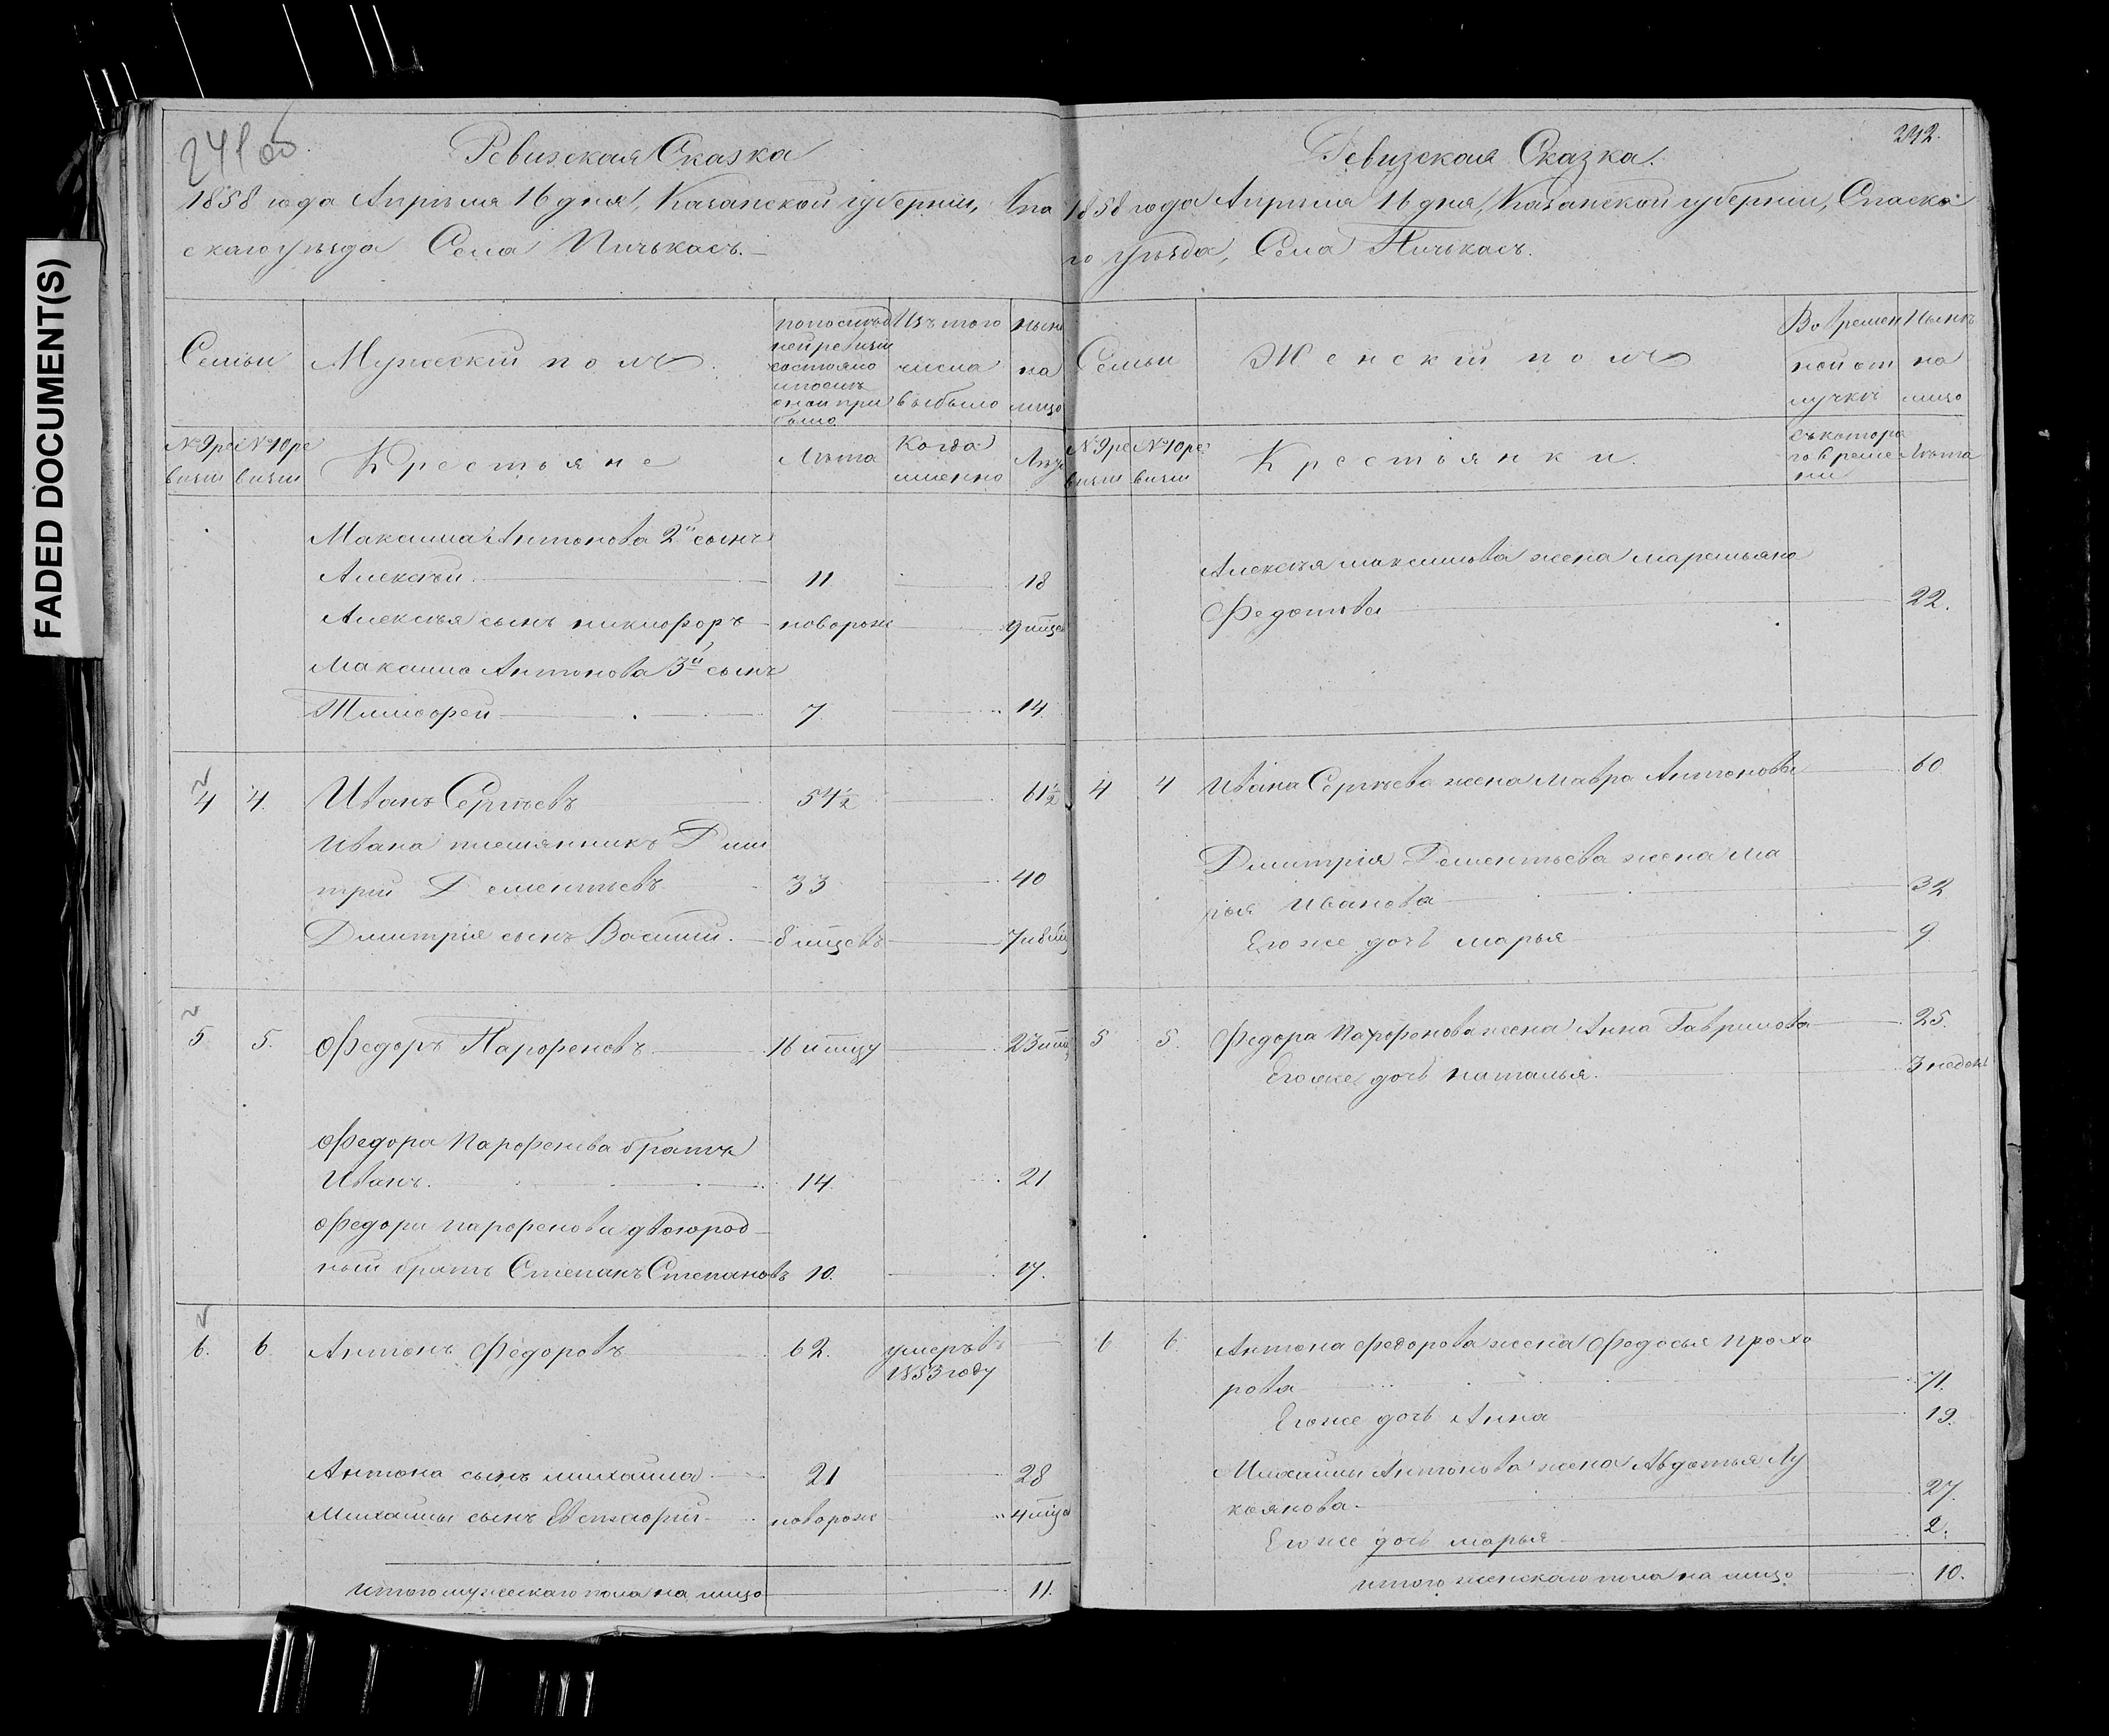 FADED DOCUMENT(S)
Ревизская Сказка
1858 года Апрѣля 16 дня, Казанской губерніи, Спа
скаго уѣзда Села Пичькасъ.
Семьи
Мужескій полъ.
по послѣд
ней ревизіи
состояло
и послѣ
оной при
было
Изъ того
числа
выбыло
нынѣ
на
лицо
№ 9 ре
визіи
№ 10 ре
визіи
Крестьяне
Лѣта
Когда
именно
Лѣта
Максима Антонова 2й сынъ
Алексѣй 11 18
Алексѣя сынъ никифоръ новорож 9 мцев
Максима Антонова 3й сынъ
Тимофей 7 14
4 4. Иванъ Сергѣевъ 54½ 61½
Ивана племянникъ Дми
трій Дементьевъ 33 40
Дмитрія сынъ Василій. 8 мцевъ 7 и 8 мц
5 5. Федоръ Парфеновъ 16 и мцу 23 и мц
Федора Парфенова братъ
Иванъ. 14. 21
Федора парфенова двоюрод
ный братъ Степанъ Степановъ 10. 17.
6. 6 Антонъ Федоровъ 62. умеръ въ
1853 году
Антона сынъ михаила 21 28
Михаилы сынъ новорож 4 мца
итого мужескаго пола на лицо 11.
242.
Ревизская Сказка.
1858 года Апрѣля 16 дня, Казанской губерніи, Спаска
го уѣзда, Села Пичькасъ.
Семьи
Женскій полъ
Во времен
ной от
лучкѣ
Нынѣ
на
лицо
№ 9 ре
визіи
№ 10 ре
визіи
Крестьянки.
съ котора
го време
ни
Лѣта
Алексѣя максимова жена маремьяна
Федотова 22.
4 4 Ивана Сергѣева жена мавра Антонова 60
Дмитрія Дементьева жена ма
рья Иванова 32
Его же дочь марья 9
5 5. Федора Парфенова жена Анна Гаврилова 25.
Его же дочь наталья. 3 недель
6 6. Антона федорова жена Федосья прохо
рова 71.
Его же дочь Анна 19.
Михаилы Антонова жена Авдотья Лу
коянова. 27.
Его же дочь марья 2.
итого женскаго пола на лицо 10.